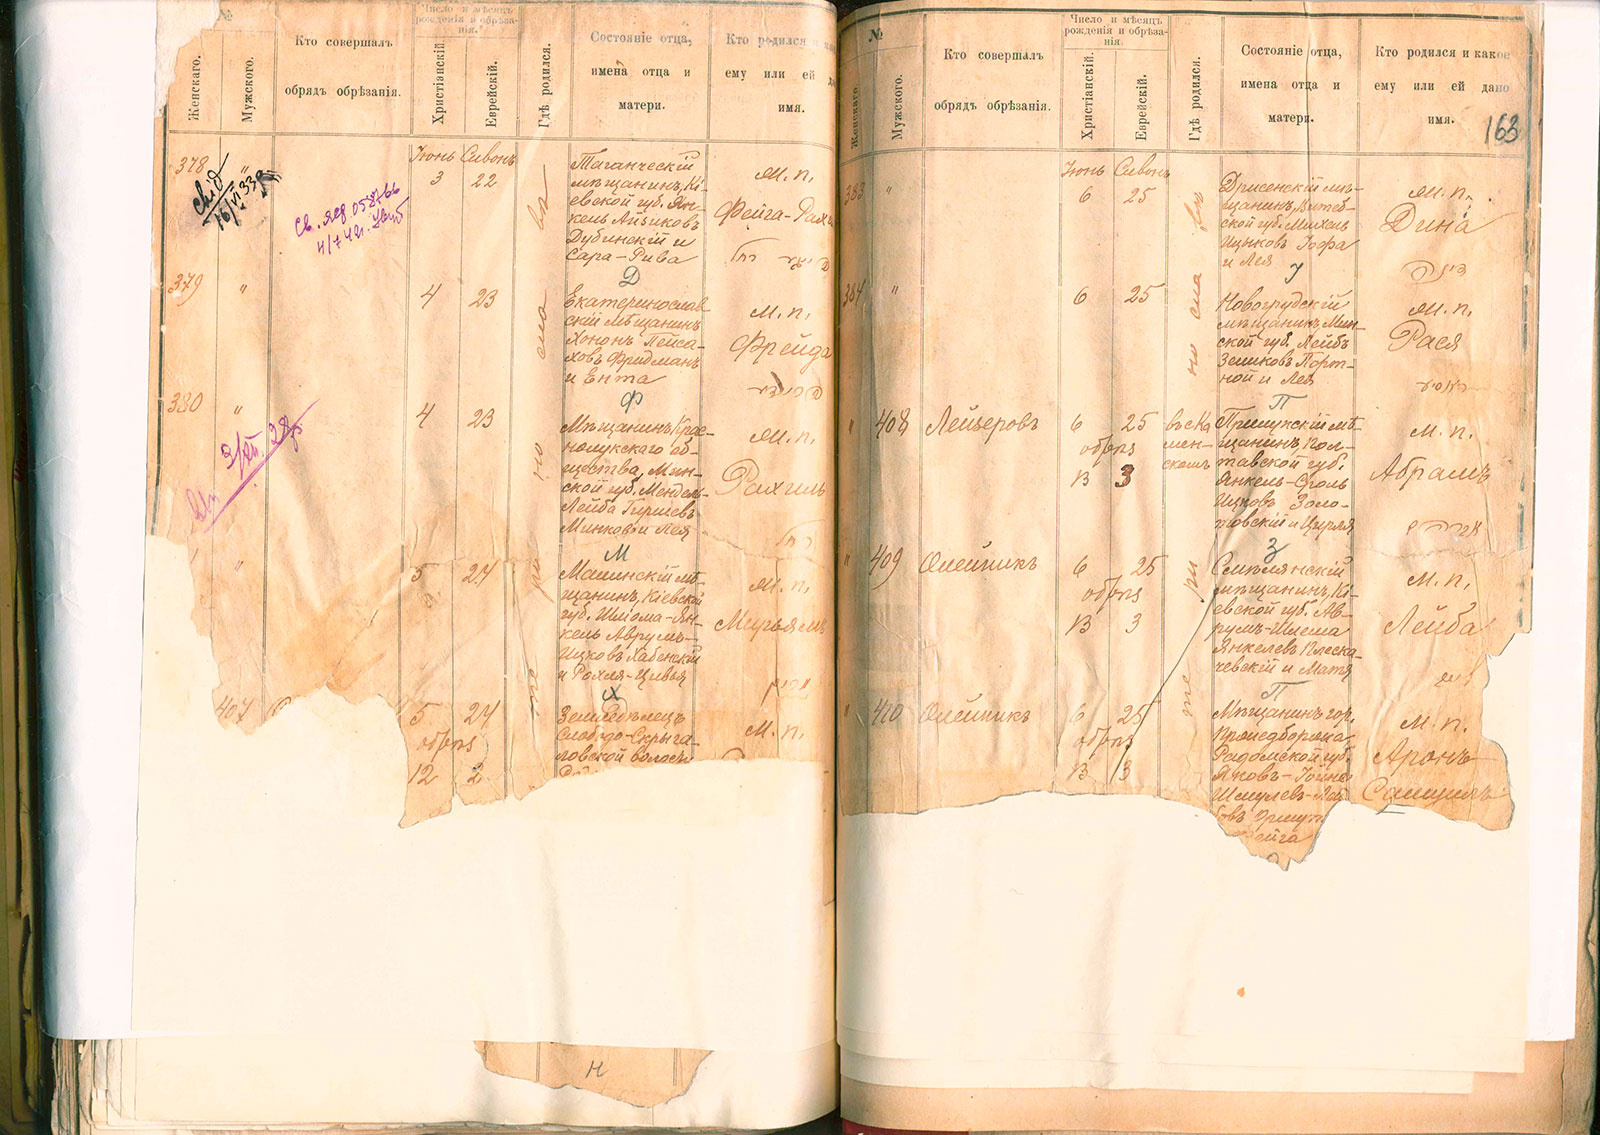 №
Женскаго.
Мужскаго.
Кто совершалъ
обрядъ обрѣзанія.
Число и мѣсяцъ
рожденія и обрѣза-
нія.
Христіанскій.
Еврейскій.
Гдѣ родился.
Состояніе отца,
имена отца и
матери.
Кто родился и како
ему или ей да
имя.
378
"
свід
16/VI 33р
Св. яед 058766
4/7 42г.
Іюнь Сивонъ
3 22
Таганческій
мѣщанинъ, Кі-
евской губ. Ян-
кель Айзиковъ
Дубинскій и
Сара-Рива
м. п.
Фейга-Рахи
Д
379
"
4 23
Екатеринослав
скій мѣщанинъ
Хононъ Пейса-
ховъ Фридманъ
и Ента
м. п.
Фрейда
פריידא
Ф
380
"
4 23
Мѣщанинъ Крас-
нолукскаго об-
щества, Мин-
ской губ. Мендель-
Лейба Гиршевъ
Минковъ и Лея
м. п.
Рахиль
רחל
М
"
5 24
Мѣ-
щанинъ, Кіевской
губ. Шліома-Ян-
кель Аврумъ-
Ицковъ Хабенскій
и Рохля-Цивья
м. п.
Мирьямъ
מרים
Х
407
5 24
обрѣз
12 2
Земледѣлецъ
Слободо-Скрыга-
ловской волост
м. п.
родилась въ
н
№
Женскаго
Мужского.
Кто совершалъ
обрядъ обрѣзанія.
Число и мѣсяцъ
рожденія и обрѣза-
нія.
Христіанскій.
Еврейскій.
Гдѣ родился.
Состояніе отца,
имена отца и
матери.
Кто родился и какое
ему или ей дано
имя.
163
383
"
Іюнь Сивонъ
6 25
Дрисенскій мѣ-
щанинъ, Витеб-
ской губ. Михель
Ицковъ Іоффа
и Лея
м. п.
Дина
דינה
І
384
"
6 25
Новогрудскій
мѣщанинъ, Мин-
ской губ. Лейбъ
Зеликовъ Порт-
ной и Лея
м. п.
Рася
ראסיא
П
"
408
Лейзеровъ
6 25
обрѣз
13 3
въ Ка
мен-
скомъ
Прилукскій мѣ-
щанинъ Пол-
тавской губ.
Янкель-Сроль
Ицковъ Золо-
товскій и Цирля
м. п.
Абрамъ
אברהם
З
"
409
Олейникъ
6 25
обрѣз
13 3
Смѣлянскій
мѣщанинъ, Кі-
евской губ. Ав-
румъ-Шлема
Янкелевъ Плеска-
чевскій и Матя
м. п.
Лейба
ליב
П
"
410
Олейникъ
6 25
обрѣз
13 3
Мѣщанинъ гор.
Радомской губ.
Яковъ-Іойне
Шмулевъ-
м. п.
Аронъ
Самуилъ